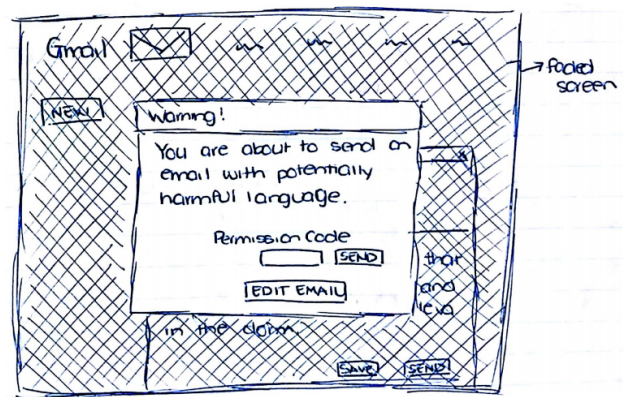 Gmail
→ faded
screen
NEW
Warning!
You are about to send an
email with potentially
harmful language.
Permission Code
SEND
EDIT EMAIL
that
and
in the
SAVE
SEND